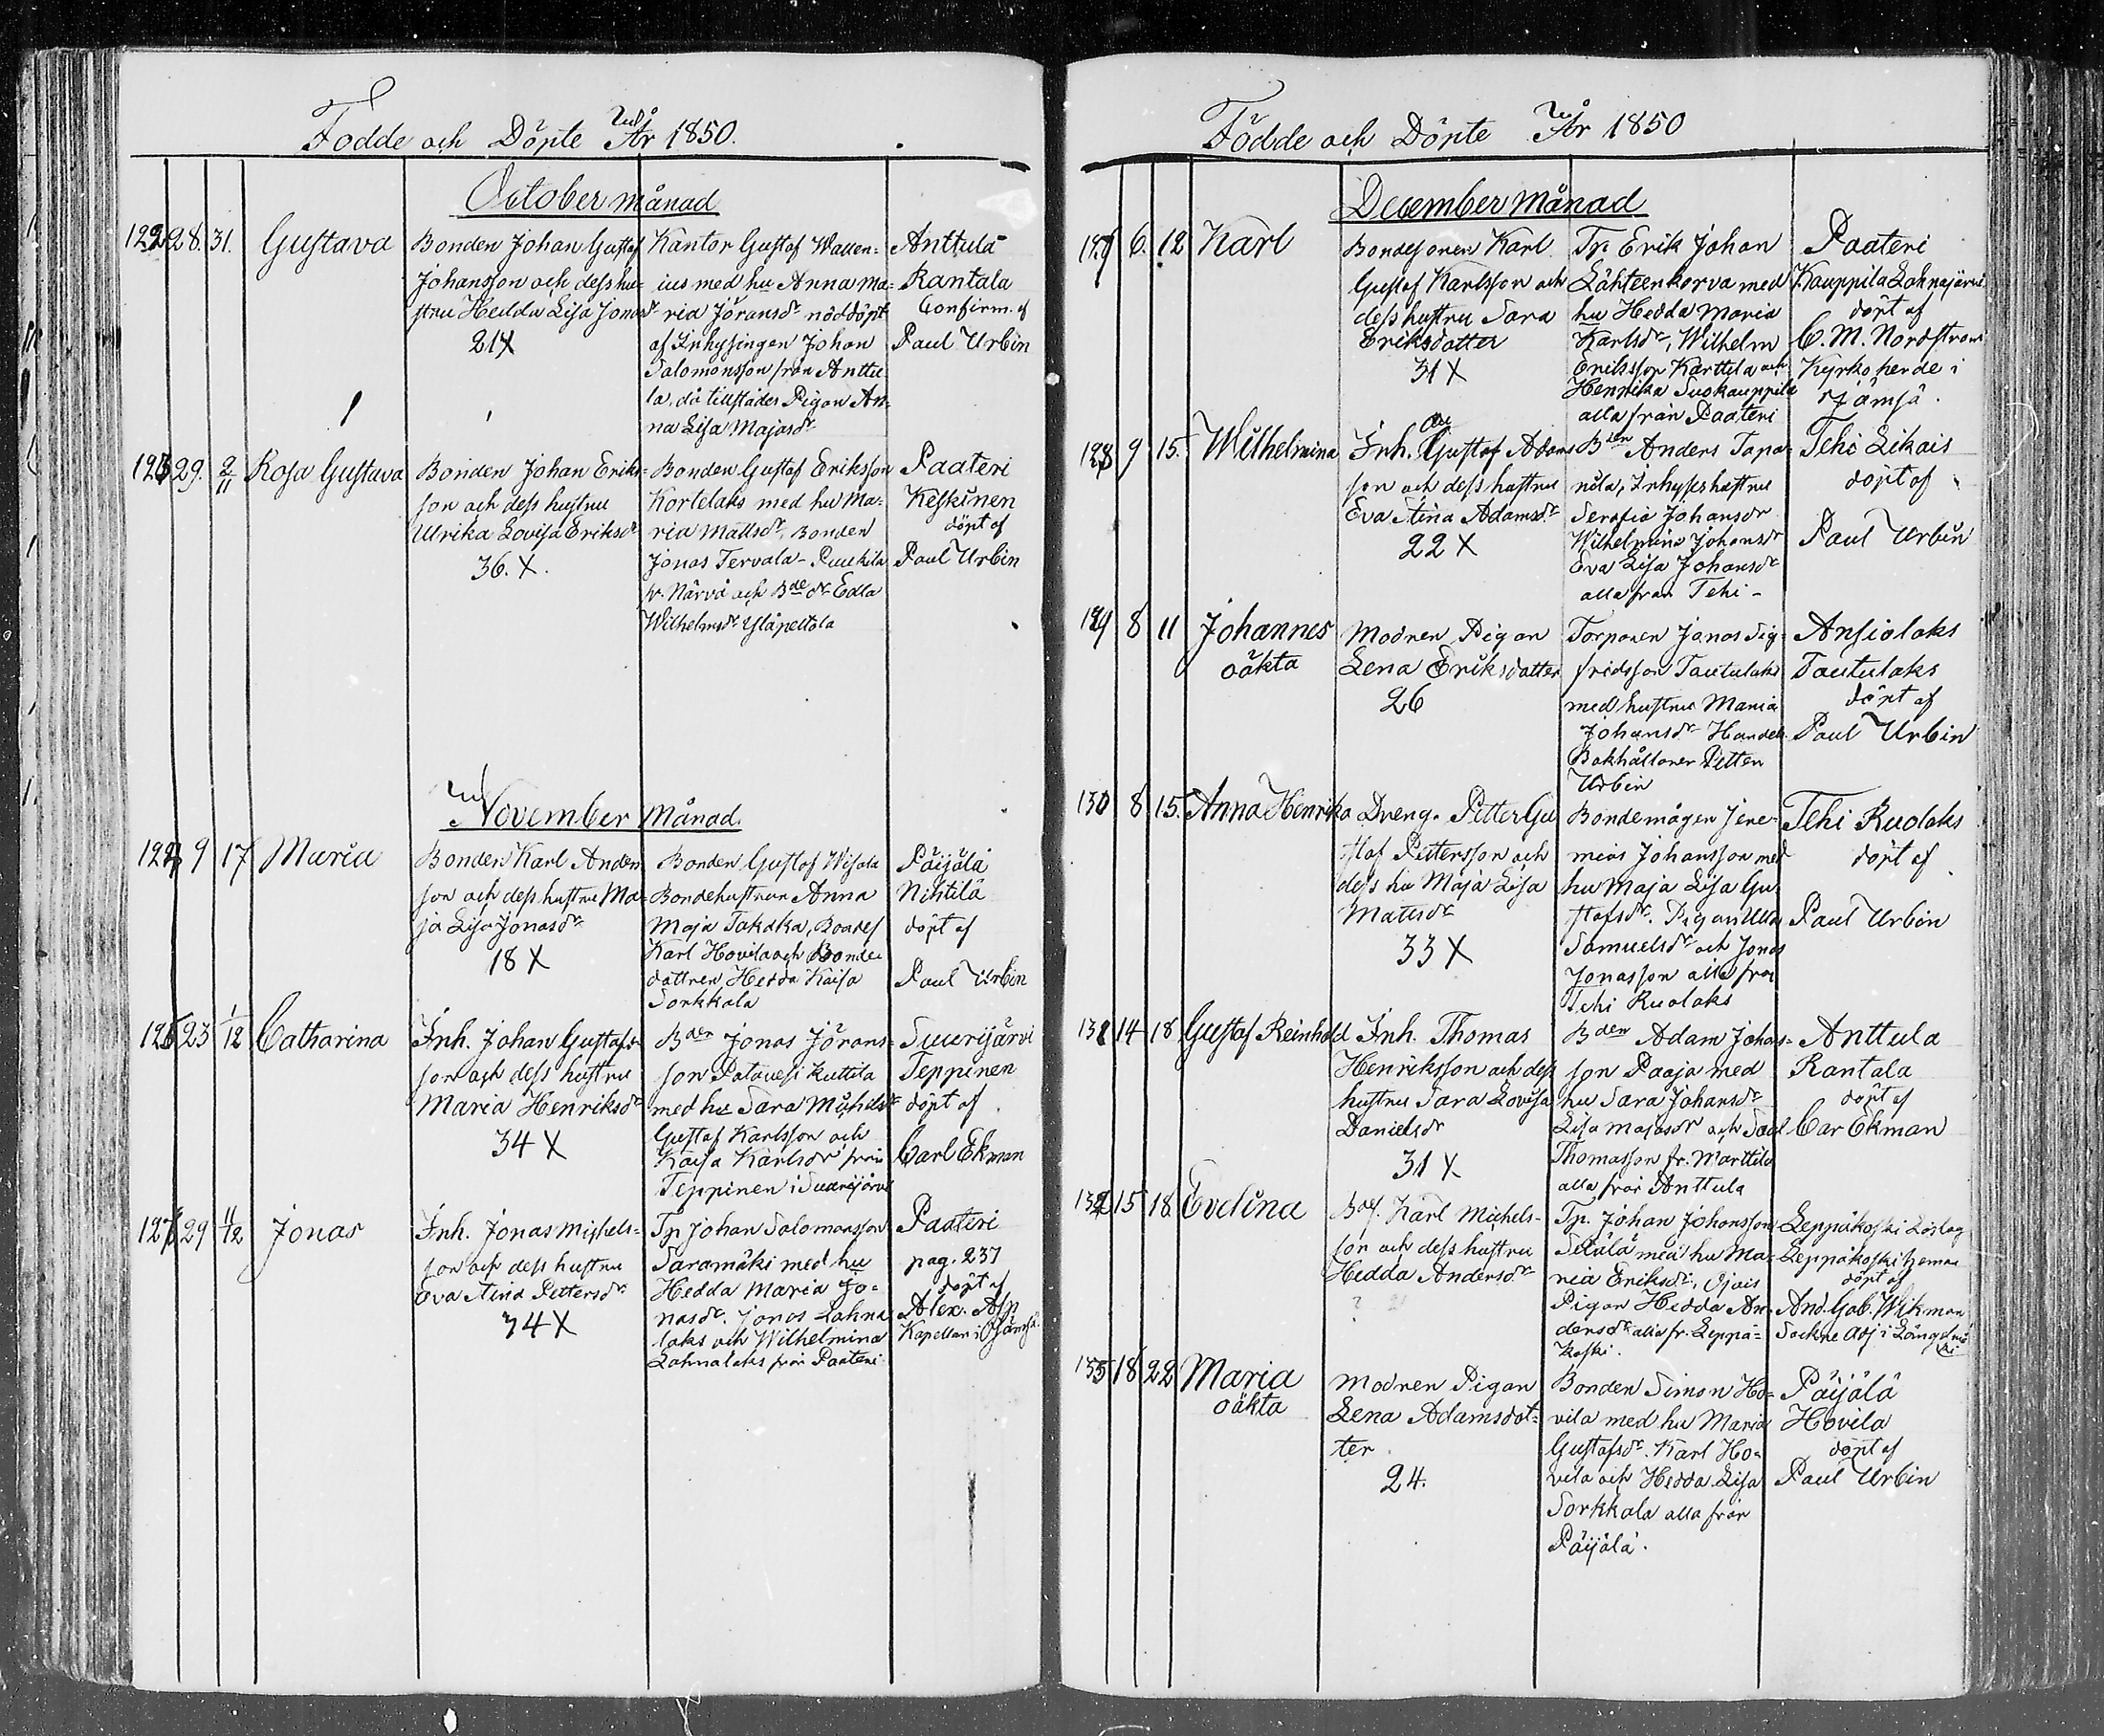 Födde och Döpte År 1850.
October månad
122 28. 31. Gustava
Bonden Johan Gustaf
Johansson och dess hu=
stru Hedda Lisa Jonasdr
21 X
Kantor Gustaf Wallen=
ius med hu Anna Ma=
ria Jöransdr nöddöpt
af Inhysingen Johan
Salomonsson från Anttu
la, då tillstädes Pigan An=
na Lisa Majasdr
Anttula
Rantala
Confirm. af
Paul Urbin
123 29. 2/11 Rosa Gustava
Bonden Johan Eriks=
son och dess hustru
Ulrika Lovisa Eriksdr
36. X.
Bonden Gustaf Eriksson
Kortelaks med hu Ma=
ria Mattsdr, Bonden
Jonas Tervala-Puukila
fr. Närvä och Bde dr Edla
Wilhelmsdr Yläpeltola
Paateri
Keskinen
döpt af
Paul Urbin
November Månad.
124 9 17 Maria
Bonden Karl Anders
son och dess hustru Ma
ja Lisa Jonasdr
18 X
Bonden Gustaf Wisala
Bondehustrun Anna
Maja Takaka, Bondes
Karl Hovila och Bonde
dottren Hedda Kaisa
Sorkkala
Päijälä
Nihtilä
döpt af
Paul Urbin
23 1/12 Catharina
Inh. Johan Gustafs=
son och dess hustru
Maria Henriksdr
34 X
Bden Jonas Jörans=
son Patavesi Kuttila
med hu Sara Michelsdr
Gustaf Karlsson och
Kaisa Karlsdr från
Teppinen i Suurijärvi
Suurijärvi
Teppinen
döpt af
Carl Ekman
29 11/12 Jonas
Inh. Jonas Michels=
son och dess hustru
Eva Stina Pettersdr
34 X
Tp Johan Salomonsson
Saramäki med hu
Hedda Maria Jo=
nasdr. Jonas Lahna
laks och Wilhelmina
Lahnalaks från Paateri
Paateri
pag. 237
döpt af
Alex. Asp
Kapellan i Jämsä.
Födde och Döpte År 1850
December månad
6. 12 Karl
Bondesonen Karl
Gustaf Karlsson och
dess hustru Sara
Eriksdotter
31 X
Tp. Erik Johan
Lähteenkorva med
hu Hedda Maria
Karlsdr, Wilhelm
Eriksson Karttila och
Henrika Suokauppila
alla från Paateri
Paateri
Kauppila Lahnajärvi
döpt af
C. M. Nordstrom
Kyrkoherde i
Jämsä.
128 9 15. Wilhelmina
Inh. Gustaf Adams
son och dess hustru
Eva Stina Adamsdr
22 X
Bden Anders Tapa=
nila, Inhyseshustru
Serafia Johansdr
Wilhelmina Johansdr
Eva Lisa Johansdr
alla från Tehi-
Tehi Likais
döpt af
Paul Urbin
129 8 11 Johannes
oäkta
Modren Pigan
Lena Eriksdotter
26
Torparen Jonas Sig=
fridsson Tautulaks
med hustru Maria
Johansdr Handels
Bokhållaren Petter
Urbin
Ansiolaks
Tautulaks
döpt af
Paul Urbin
130 8 15. Anna Henrika
Dreng. Petter Gu
staf Pettersson och
dess hu Maja Lisa
Mattsdr
33 X
Bondemågen Jere=
mias Johansson med
hu Maja Lisa Gu
stafsdr. Pigan Ulla
Samuelsdr och Jonas
Jonasson alla från
Tehi Ruolaks
Tehi Ruolaks
döpt af
Paul Urbin
14 18 Gustaf Reinhold
Inh. Thomas
Henriksson och dess
hustru Sara Lovisa
Danielsdr
31 X
Bden Adam Johans=
son Paaja med
hu Sara Johansdr
Lisa Majasdr och Saul
Thomasson fr. Marttila
alla från Anttula
Anttula
Rantala
döpt af
Car Ekman
132 15 18 Evelina
Bof. Karl Michels-
son och dess hustru
Hedda Andersdr
?
Tp. Johan Johansson
Setälä med hu Ma=
ria Eriksdr, Ojais
Pigan Hedda An=
dersdr alla fr. Leppä=
koski.
Leppäkoski
Leppäkoski hemma
döpt af
And. Gab. Wikman
Sockne Adj i Längelmä
ki
18 22 Maria
oäkta
Modren Pigan
Lena Adamsdot=
ter.
24.
Bonden Simon Ho=
vila med hu Maria
Gustafsdr. Karl Ho=
vila och Hedda Lisa
Sorkkala alla från
Päijälä.
Päijälä
Hovila
döpt af
Paul Urbin